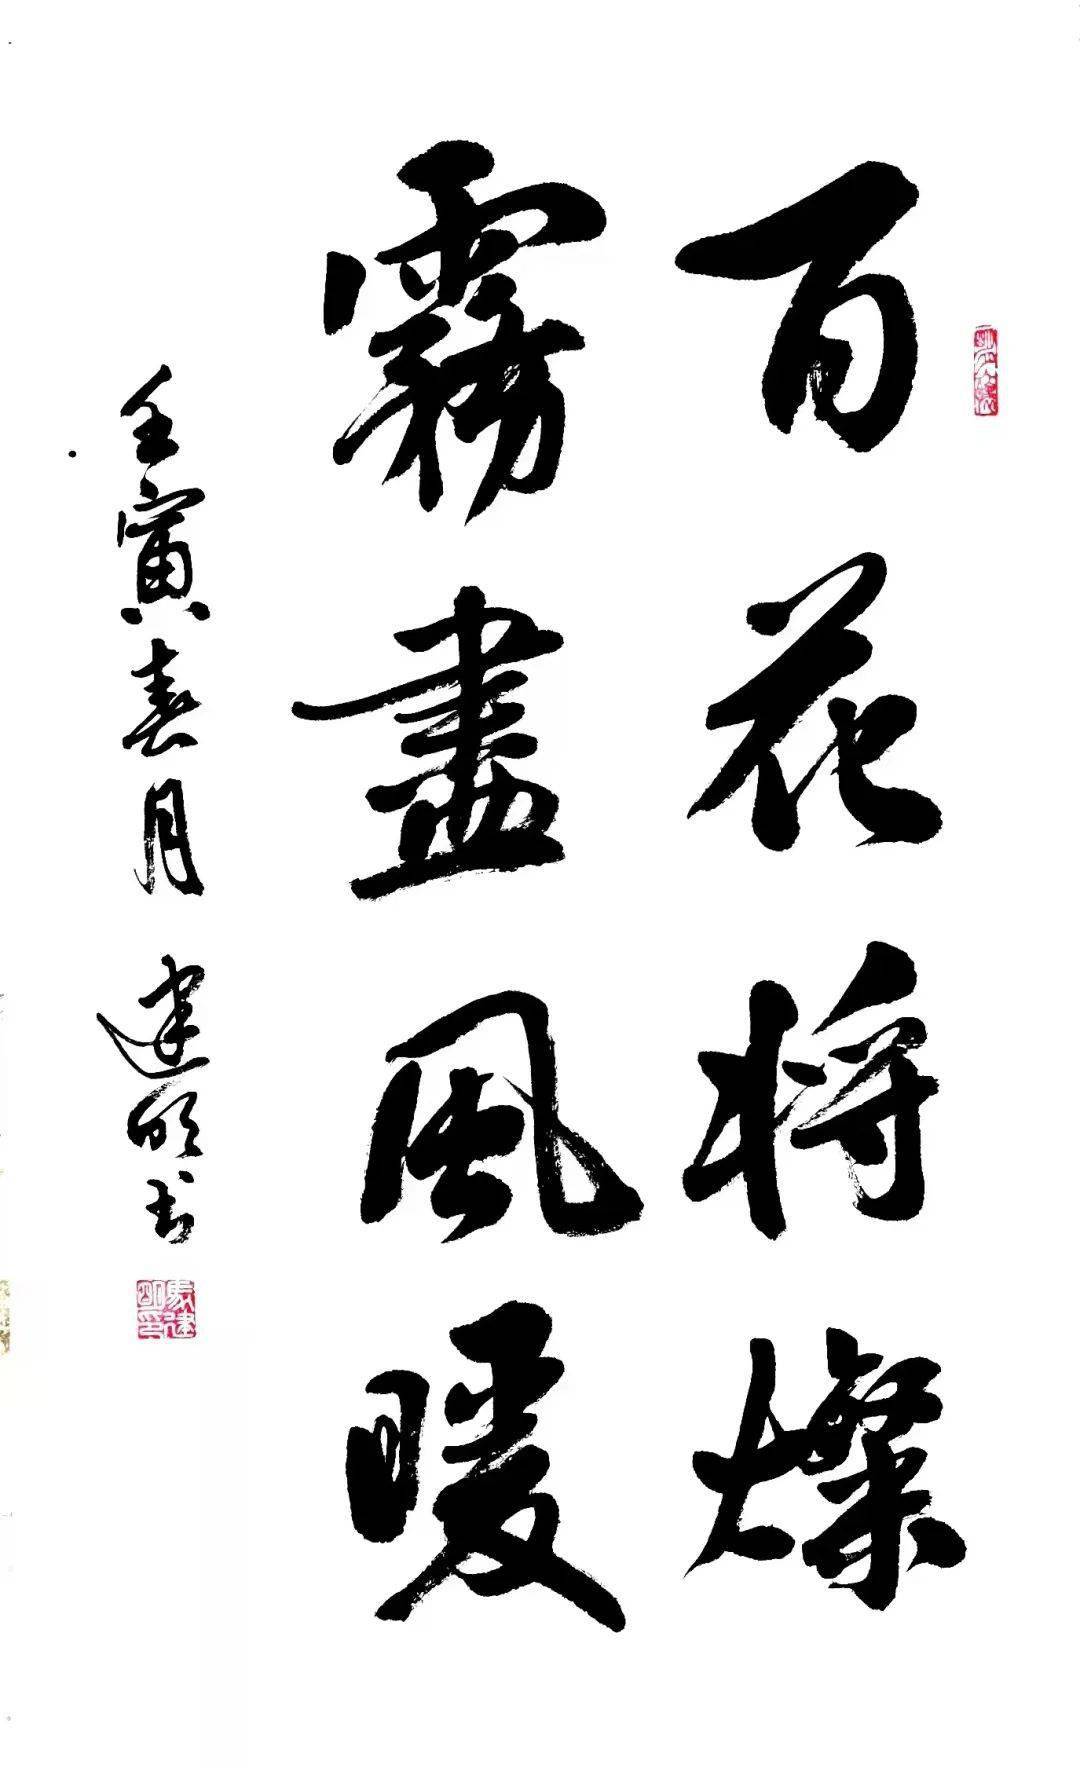 百花将燦
霧盡風暖
壬寅春月 建明书